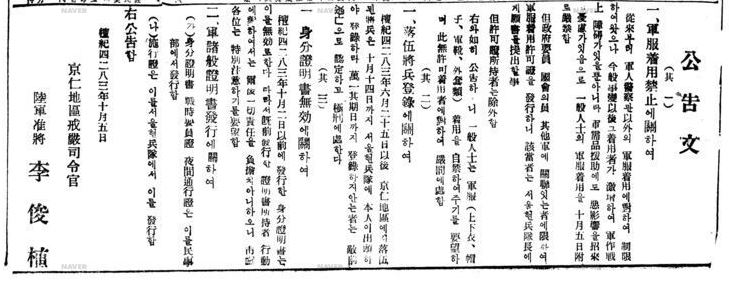 公告文
(其一)
一、軍服着用禁止에關하여
從來부터 軍人警察以外의 軍服着用에對하여 制限
하여왓으나 今般事變以後그着用者가 激增하여 軍作戰
上 障碍가잇을뿐아니라 軍需品援助에도 惡影響을招來
憂慮가잇음으로 一般人士의 軍服着用을 十月五日附
로嚴禁함
但政府委員 國會議員 其他軍에 關聯잇는者에限하여
軍服着用許可證을 發行하니 該當者는 서울헌兵隊長에
게願書를提出할事
但許可證所持者는除外함
右와如히 公告하니 一般人士는 軍服(上下衣、帽
子、軍靴、外套類) 着用을 自禁하여주기를 要望하
며 此無許可着用者에對하여 嚴罰에處함
(其二)
一、落伍將兵登錄에關하여
檀紀四二八三年六月二十五日以後 京仁地區에서落伍
된將兵은 十月十四日까지 서울헌兵隊에 本人이出頭하
야 登錄하라 萬一其期日까지 登錄하지안는者는 敵前
逃亡으로 認定하고 極刑에處함
(其三)
一、身分證明書無効에關하여
檀紀四二八三年十月一日以前에發行한 身分證明書는
이를無効로함 따라서旣前發行한 證明書所持者 行動
에對하여서는 爾後一切責任을 負擔치아니하오니
各位는 特別注意하기를要望함
二、軍諸般證明書發行에關하여
(가)身分證明書 戰時要員證 夜間通行證은 이를民事
部에서發行함
(나)旅行證은 이를서울헌兵隊에서 이를 發行함
右公告함
檀紀四二八三年十月五日
京仁地區戒嚴司令官
陸軍准將 李俊植
NAVER